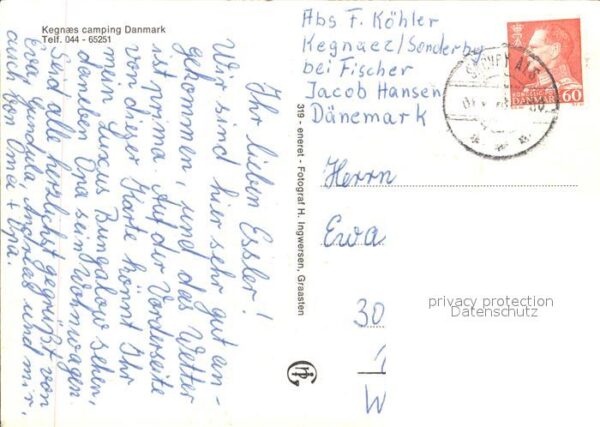 Kegnæs camping Danmark
Telf. 044 - 65251
Ihr lieben Essler!
Wir sind hier sehr gut an-
gekommen, und das Wetter
ist prima. Auf der Vorderseite
von dieser Karte könnt Ihr
mein Luxus Bungalow sehen,
daneben Opa sein Wohnwagen.
Seid alle herzlichst gegrüßt von
Eva, Gundula, Andreas und mir,
auch von Oma + Opa.
319 - eneret - Fotograf H. Ingwersen, Graasten
Abs F. Köhler
Kegnaez/Sonderby
bei Fischer
Jacob Hansen
Dänemark
DANMARK 60
Herrn
Ewa
30
1
W
privacy protection
Datenschutz